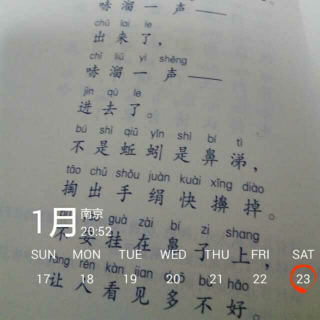 哧溜一声——
chū lai le
出来了，
chī liū yì shēng
哧溜一声——
jìn qù le
进去了。
bú shì qiū yǐn shì bí tì
不是蚯蚓是鼻涕，
tāo chū shǒu juàn kuài xǐng diào
掏出手绢快擤掉。
1月 南京
20:52
guà zài bí zi shang
不要挂在鼻子上，
SUN MON TUE WED THU FRI SAT
ràng rén kàn jiàn duō bù hǎo
17 18 19 20 21 22 23
让人看见多不好。